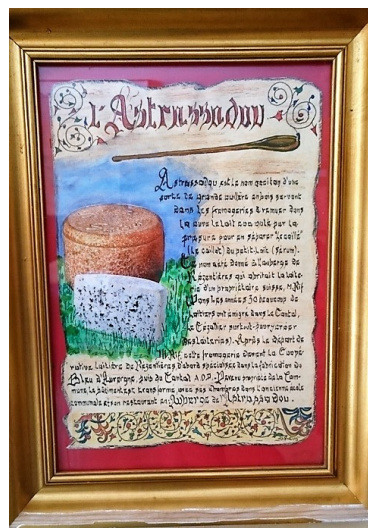 L'Astrassadou
Astrassadou est le nom occitan d'une
sorte de grande cuillère en bois servant
dans les fromageries à remuer dans
la cuve le lait coagulé par la
présure pour en séparer le caillé
(le caillot) du petit lait (serum).
Ce nom a été donné à l'auberge de
Rézentières qui abritait la laite-
rie d'un propriétaire suisse, M. Rif
Dans les années 30 beaucoup de
laitiers ont émigré dans le Cantal,
le Cézallier surtout pour y créer
des laiteries). Après le départ de
M. Rif, cette fromagerie devient la Coopé-
rative laitière de Rézentières d'abord spécialisée dans la fabrication du
Bleu d'Auvergne, puis du Cantal A.O.P. Devenu propriété de la Com-
mune, le bâtiment est transformé avec ses chambres dans l'ancienne école
communale et son restaurant en: Auberge de l'Astrassadou.